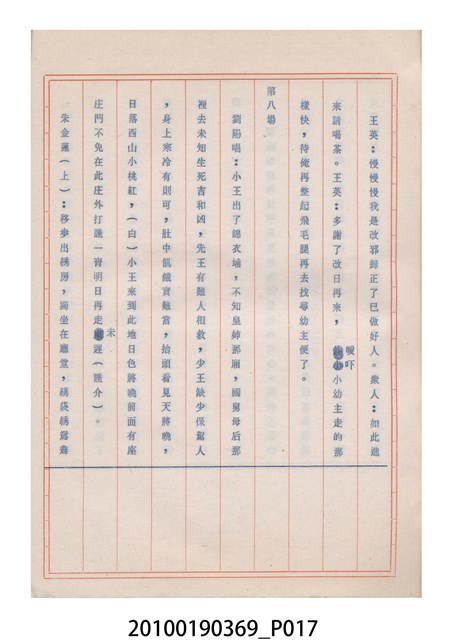 王英：慢慢慢我是改邪歸正了已做好人。衆人：如此進
來請喝茶。王英：多謝了改日再來，哎吓小幼主走的那
樣快，待俺再整起飛毛腿再去找尋幼主便了。
第八場
劉陽唱：小王出了錦衣埔，不知皇娘那厢，國舅母后那
裡去未知生死吉和凶，先王有難人相救，少王缺少保駕人
，身上寒冷有則可，肚中飢餓實難當，抬頭看見天將晚，
日落西山小桃紅，（白）小王來到此地日色將晚前面有座
庄門不免在此庄外打謢一宵明日再走未遲（謢介）。
朱金蓮（上）：移步出綉房，獨坐在廳堂，綉袋綉鴛鴦
20100190369_P017